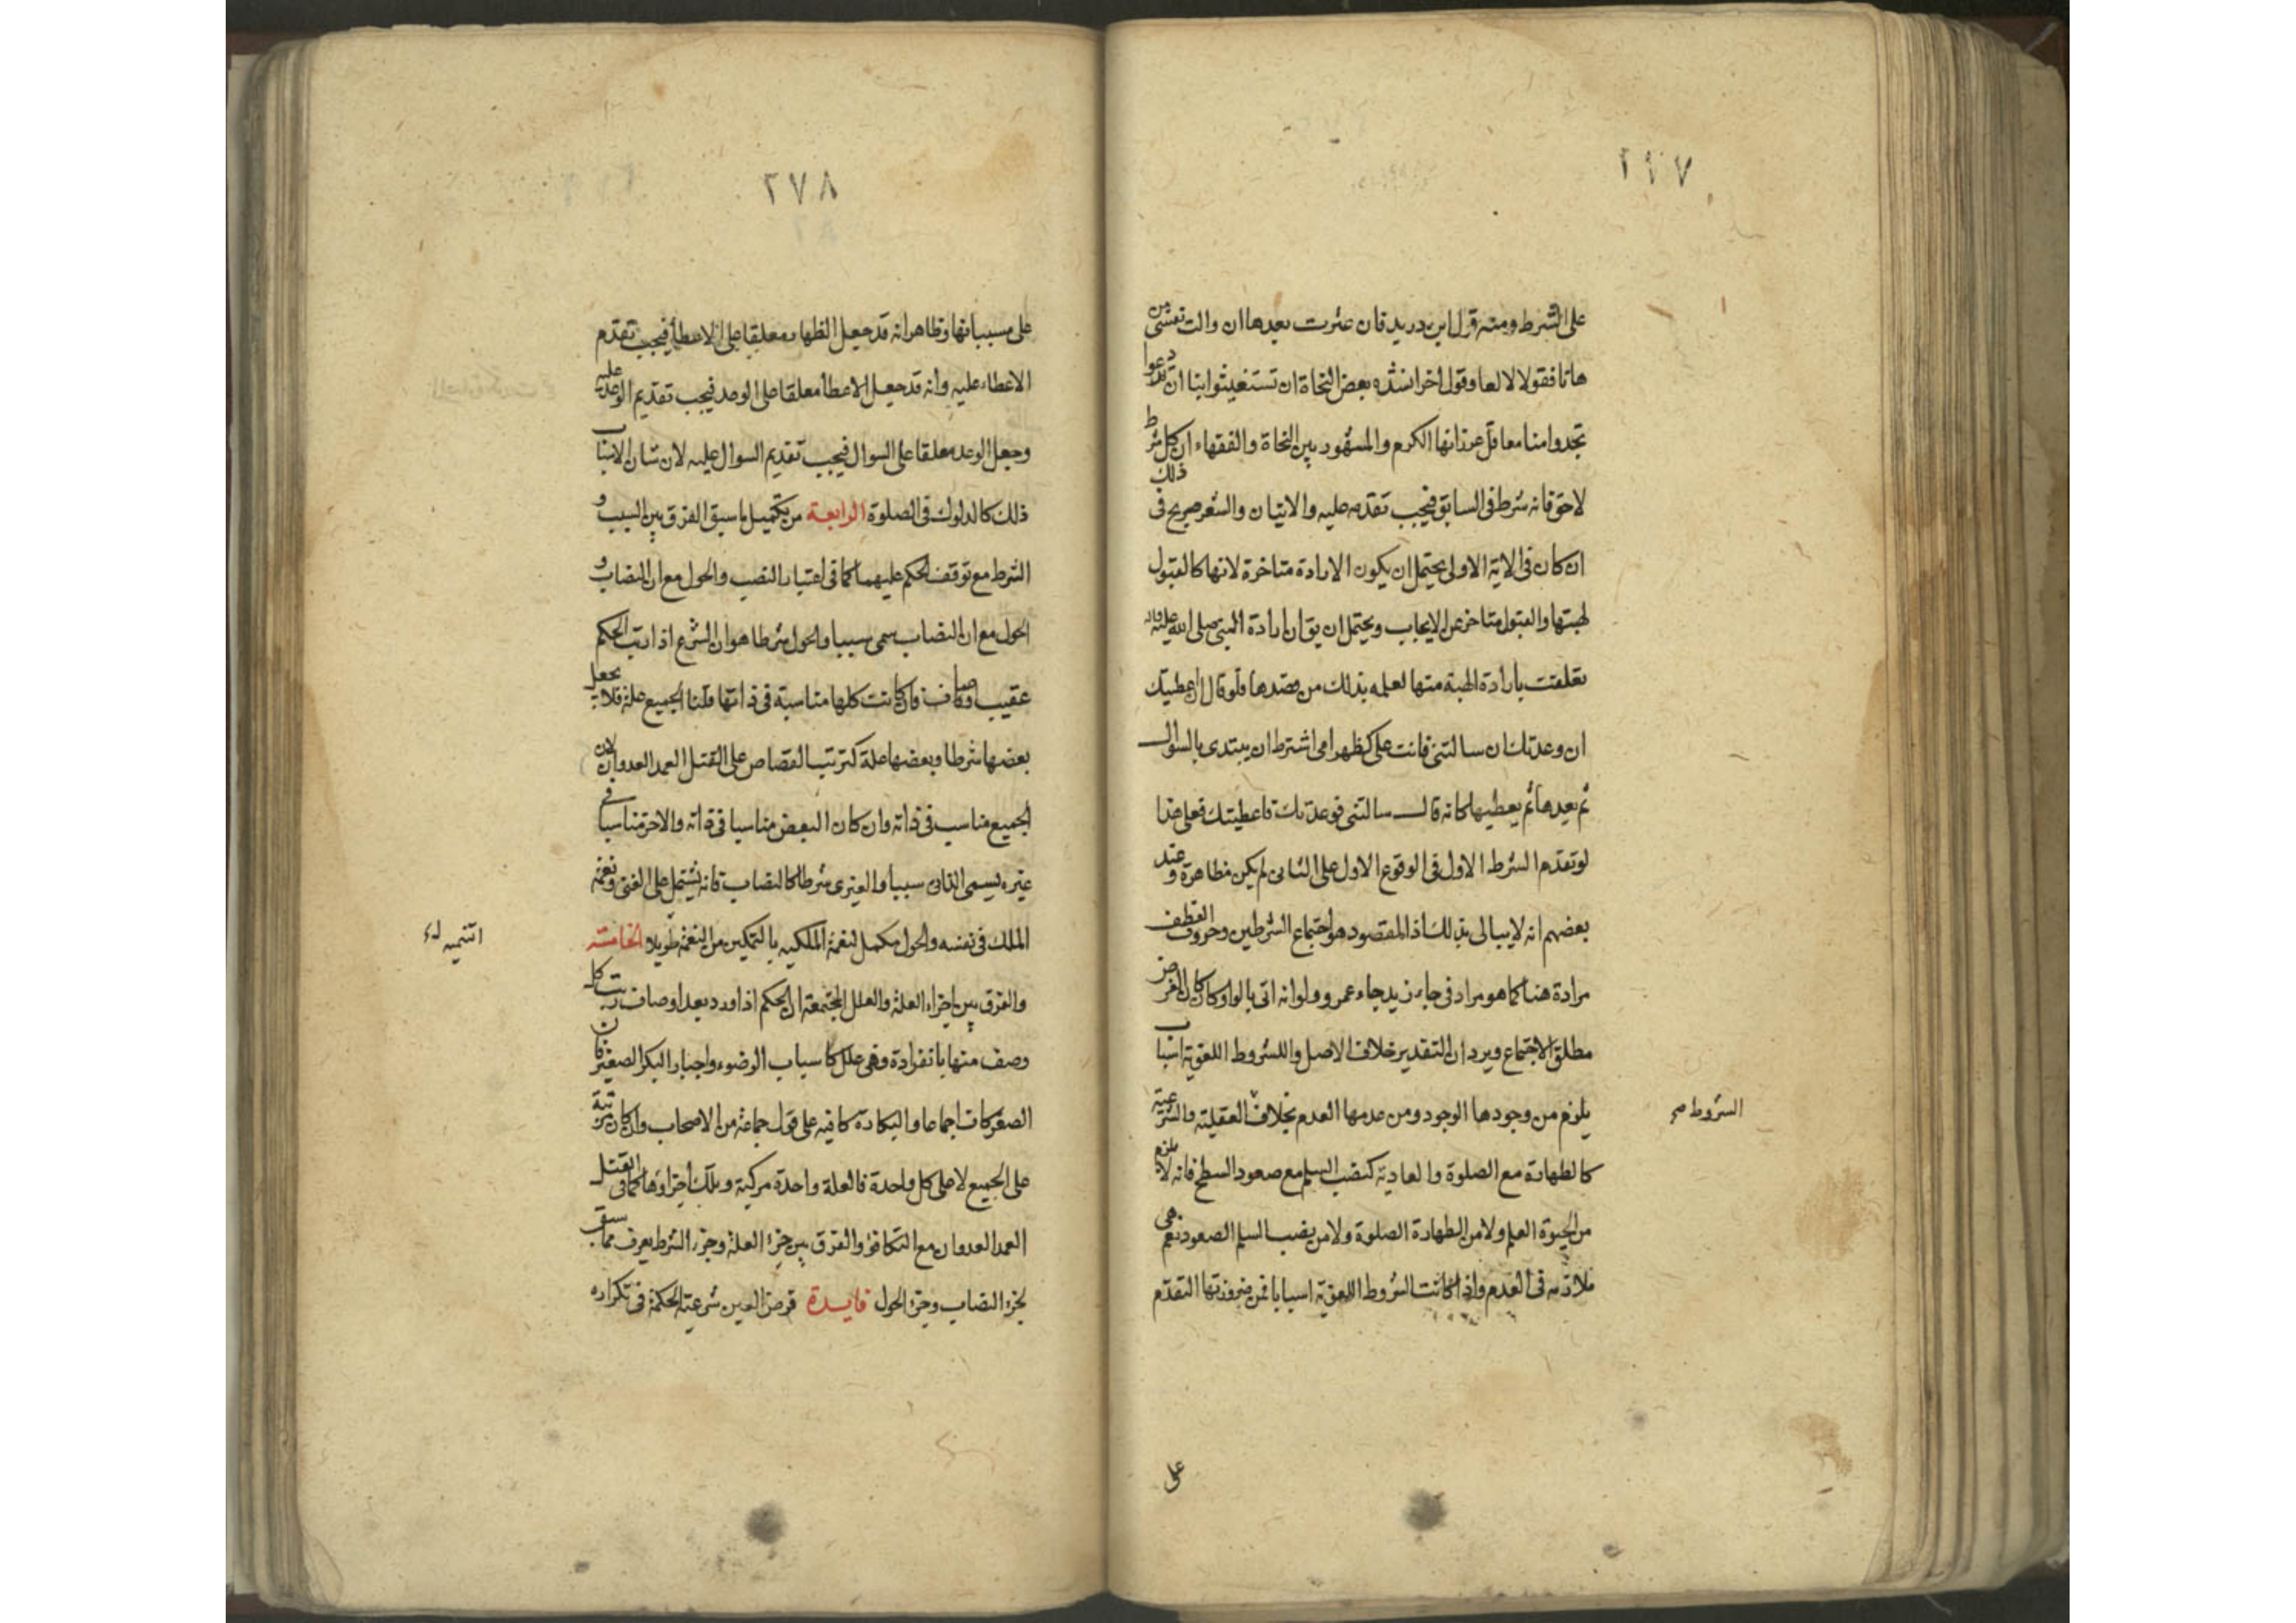 ٢٩٧
على الشرط ومنه قول ابن دريد فان عثرت بعدها ان والت نفسى من
هاتا فقولا لا لعا وقول اخر انشده بعض النحاة ان تستغيثوا بنا ان تذعروا
تجدوا منا معاقل عز زانها الكرم والمشهور بين النحاة والفقهاء ان كل شرط
لاحق فانه شرط فى السابق فيجب تقدمه عليه والاتيان والشعر صريح فى ذلك
ان كان فى الاية الاولى يحتمل ان يكون الارادة متاخرة لانها كالقبول
لهبتها والقبول متاخر عن الايجاب ويحتمل ان يق ان ارادة النبى صلى الله عليه واله
تعلقت بارادة الهبة منها لعلمه بذلك من قصدها فلو قال ان اعطيتك
ان وعدتك ان سالتنى فانت على كظهر امى اشترط ان يبتدى بالسوال
ثم يعدها ثم يعطيها كانه قال سالتنى فوعدتك فاعطيتك فعلى هذا
لو تقدم الشرط الاول فى الوقوع الاول على الثانى لم يكن مظاهرة وعند
بعضهم انه لا يبالى بذلك اذ المقصود هو اجتماع الشرطين وحروف العطف
مرادة هنا كما هو مراد فى جاء زيد جاء عمرو ولو انه اتى بالواو كان الغرض
مطلق الاجتماع ويرد ان التقدير خلاف الاصل والشروط اللغوية اسباب
يلزم من وجودها الوجود ومن عدمها العدم بخلاف العقلية والشرعية
الشروط صح
كالطهارة مع الصلوة والعادية كنصب السلم مع صعود السطح فانه لا يلزم
من الحيوة العلم ولا من الطهارة الصلوة ولا من نصب السلم الصعود نعم هى
ملازمه فى العدم واذا كانت الشروط اللغوية اسبابا فمن ضرورتها التقدم
على
٢٧٨
على مسبباتها وظاهر انه قد جعل الظهار معلقا على الاعطاء فيجب تقدم
الاعطاء عليه وانه قد جعل الاعطا معلقا على الوعد فيجب تقديم الوعد عليه
وجعل الوعد معلقا على السوال فيجب تقديم السوال عليه لان شان الاسباب
ذلك كالدلوك فى الصلوة الرابعة من تكميل ما سبق الفرق بين السبب و
الشرط مع توقف الحكم عليهما كما فى اعتبار النصب والحول مع ان النصاب و
الحول مع ان النصاب سمى سببا والحول شرطا هو ان الشرع اذا رتب الحكم
عقيب اوصاف فان كانت كلها مناسبة فى ذاتها قلنا الجميع علة فلا يجعل
بعضها شرطا وبعضها علة كترتيب القصاص على القتل العمد العدوان لان
الجميع مناسب فى ذاته وان كان البعض مناسبا فى ذاته والاخر مناسبا فى
غيره يسمى الذاتى سببا والغيرى شرطا كالنصاب فانه يشتمل على الغنى ونعمة
الملك فى نفسه والحول مكمل لنعمة الملكيه بالتمكين من النعمة طويلا الخامسة
والفرق بين اجزاء العلة والعلل المجتمعة ان الحكم اذا ورد بعد اوصاف رتبت كل
وصف منها بانفرادة وهى علل كاسباب الوضوء واجبار البكر الصغيرة فان
الصغر كاف اجماعا والبكارة كافيه على قول جماعة من الاصحاب وان كان مرتبة
على الجميع لا على كل واحدة فالعلة واحدة مركبة وتلك اجزاوها كما فى القتل
العمد العدوان مع التكافؤ والفرق بين جزء العلة وجزء الشرط يعرف مما سبق
لجزء النصاب وجزء الحول فايدة فرض العين شرعيته الحكمة فى تكراره